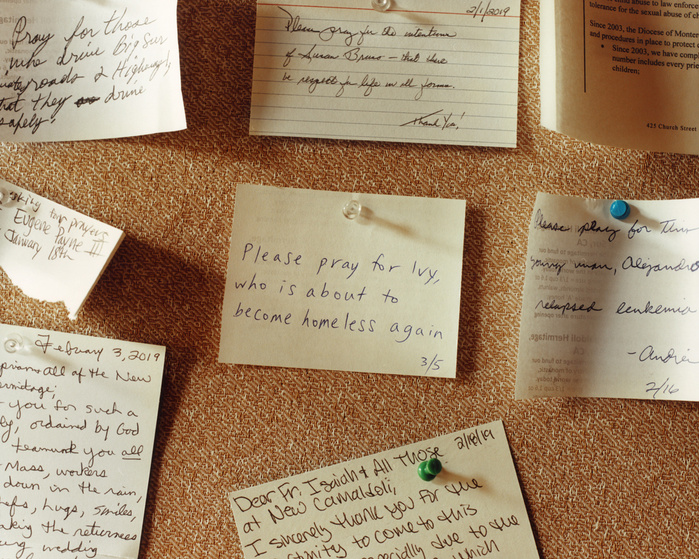 Pray for those
who drive Big Sur
roads & Highway 1
that they drive
safely.
2/1/2019
Please pray for the intentions
of Susan Bruno – that there
be respect for life in all forms.
Thank You!
abuse to law enforce
tolerance for the sexual abuse of
Since 2003, the Diocese of Monter
and procedures in place to protect
• Since 2003, we have comp
number includes every prie
children;
425 Church Street
asking your prayers
Eugene Payne III
January 18th
Please pray for Ivy,
who is about to
become homeless again
3/5
Please pray for this
young man, Alejandro
relapsed leukemia
-Andre
2/16
February 3, 2019
all of the New
Hermitage;
you for such a
ordained by God
teamwork you all
Mass, workers
down in the rain,
hugs, smiles,
the returness
wedding
2/18/19
Dear Fr. Isaiah & All Those
at New Camaldoli;
I sincerely thank you for the
to come to this
especially due to the